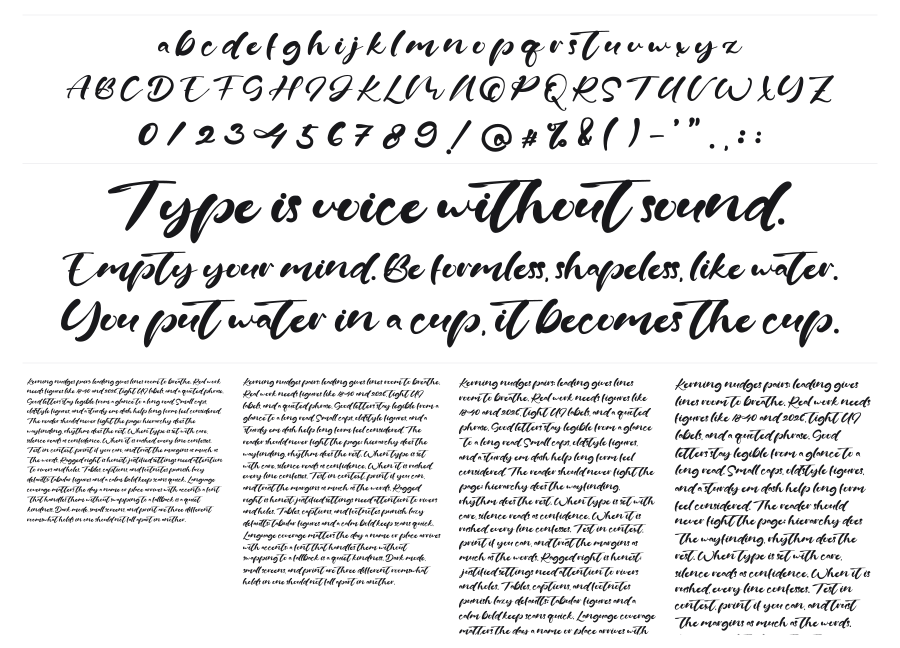 a b c d e f g h i j k l m n o p q r s t u v w x y z
A B C D E F G H I J K L M N O P Q R S T U V W X Y Z
0 1 2 3 4 5 6 7 8 9 ! @ # % & ( ) - ' " . , : ;
Type is voice without sound.
Empty your mind. Be formless, shapeless, like water.
You put water in a cup, it becomes the cup.
Kerning nudges pairs; leading gives lines room to breathe. Real work
needs figures like 18-40 and 2026, tight UI labels, and a quoted phrase.
Good letters stay legible from a glance to a long read. Small caps,
oldstyle figures, and a sturdy em dash help long form feel considered.
The reader should never fight the page: hierarchy does the
wayfinding, rhythm does the rest. When type is set with care,
silence reads as confidence. When it is rushed, every line confesses.
Test in context, print if you can, and trust the margins as much as
the words. Ragged right is honest; justified settings need attention
to rivers and holes. Tables, captions, and footnotes punish lazy
defaults: tabular figures and a calm bold keep scans quick. Language
coverage matters the day a name or place arrives with accents a font
that handles them without swapping to a fallback is a quiet
kindness. Dark mode, small screens, and print are three different
rooms; what holds in one should not fall apart in another.
Kerning nudges pairs; leading gives lines room to breathe.
Real work needs figures like 18-40 and 2026, tight UI
labels, and a quoted phrase. Good letters stay legible from a
glance to a long read. Small caps, oldstyle figures, and a
sturdy em dash help long form feel considered. The
reader should never fight the page: hierarchy does the
wayfinding, rhythm does the rest. When type is set
with care, silence reads as confidence. When it is rushed,
every line confesses. Test in context, print if you can,
and trust the margins as much as the words. Ragged
right is honest; justified settings need attention to rivers
and holes. Tables, captions, and footnotes punish lazy
defaults: tabular figures and a calm bold keep scans quick.
Language coverage matters the day a name or place arrives
with accents a font that handles them without
swapping to a fallback is a quiet kindness. Dark mode,
small screens, and print are three different rooms; what
holds in one should not fall apart in another.
Kerning nudges pairs; leading gives lines
room to breathe. Real work needs figures like
18-40 and 2026, tight UI labels, and a quoted
phrase. Good letters stay legible from a glance
to a long read. Small caps, oldstyle figures,
and a sturdy em dash help long form feel
considered. The reader should never fight the
page: hierarchy does the wayfinding,
rhythm does the rest. When type is set with
care, silence reads as confidence. When it is
rushed, every line confesses. Test in context,
print if you can, and trust the margins as
much as the words. Ragged right is honest;
justified settings need attention to rivers
and holes. Tables, captions, and footnotes
punish lazy defaults: tabular figures and a
calm bold keep scans quick. Language coverage
matters the day a name or place arrives with
Kerning nudges pairs; leading gives
lines room to breathe. Real work needs
figures like 18-40 and 2026, tight UI
labels, and a quoted phrase. Good
letters stay legible from a glance to a
long read. Small caps, oldstyle figures,
and a sturdy em dash help long form
feel considered. The reader should
never fight the page: hierarchy does
the wayfinding, rhythm does the
rest. When type is set with care,
silence reads as confidence. When it is
rushed, every line confesses. Test in
context, print if you can, and trust
the margins as much as the words.